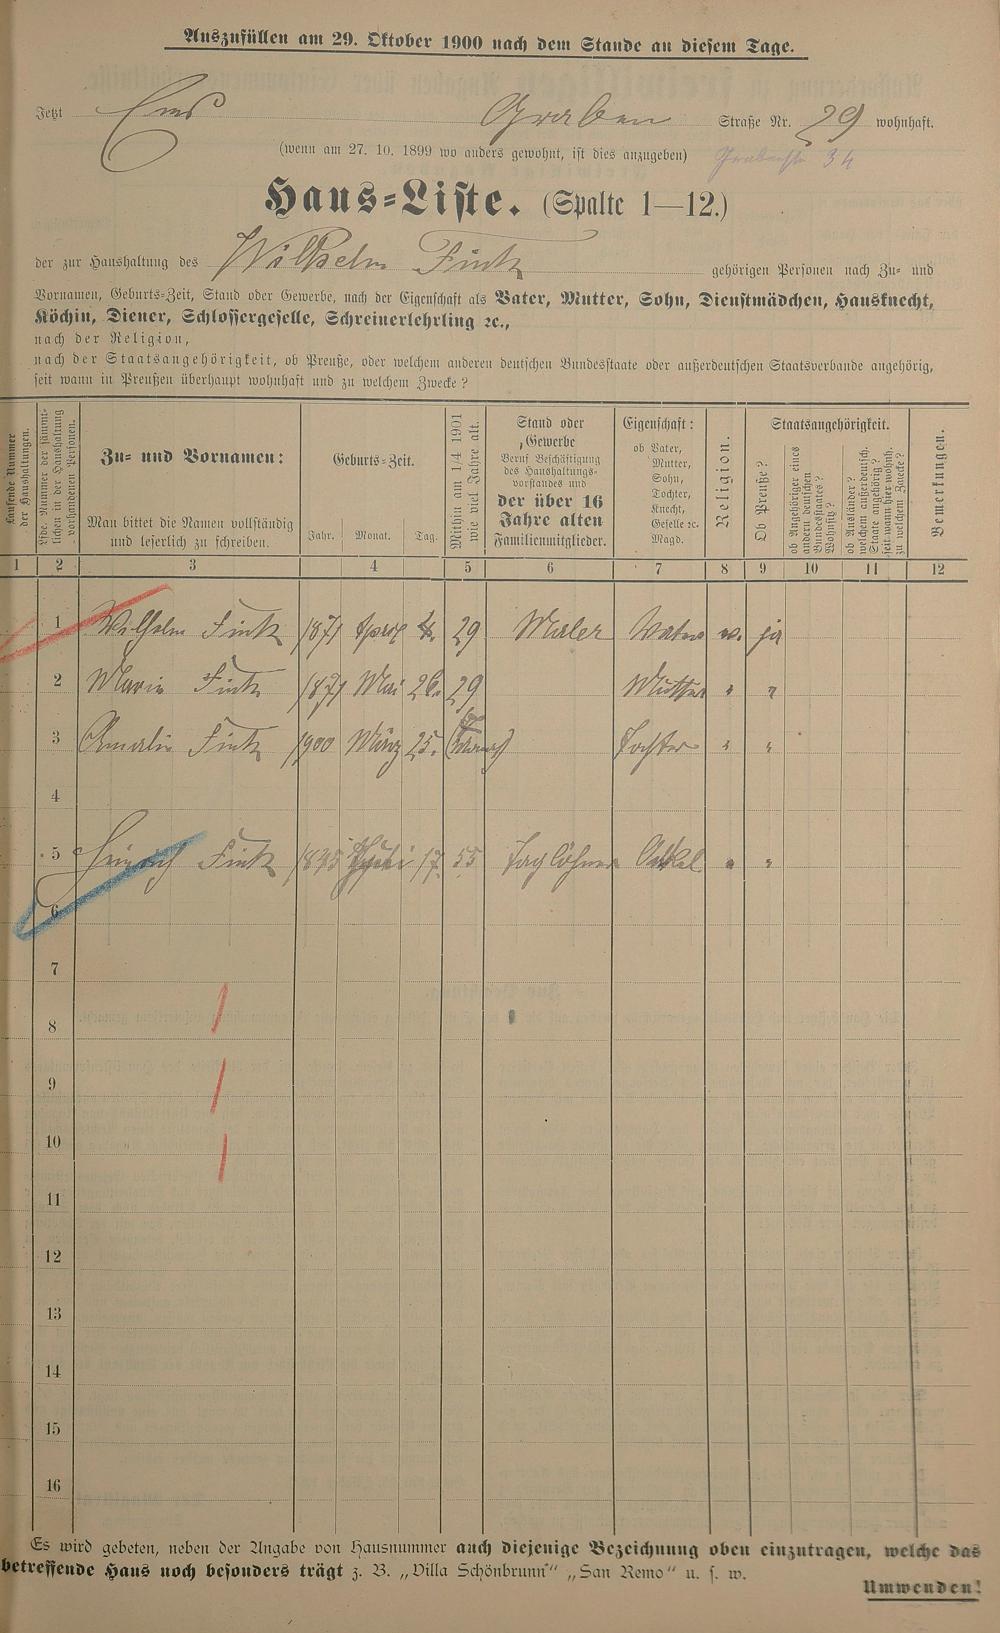 Auszufüllen am 29. Oktober 1900 nach dem Stande an diesem Tage.
Jetzt Ems Graben Straße Nr. 29 wohnhaft.
(wenn am 27. 10. 1899 wo anders gewohnt, ist dies anzugeben) Grabenstr 34
Haus-Liste. (Spalte 1—12.)
der zur Haushaltung des Wilhelm Fink gehörigen Personen nach Zu- und
Vornamen, Geburts-Zeit, Stand oder Gewerbe, nach der Eigenschaft als Vater, Mutter, Sohn, Dienstmädchen, Hausknecht,
Köchin, Diener, Schlossergeselle, Schreinerlehrling ꝛc.,
nach der Religion,
nach der Staatsangehörigkeit, ob Preuße, oder welchem anderen deutschen Bundesstaate oder außerdeutschen Staatsverbande angehörig,
seit wann in Preußen überhaupt wohnhaft und zu welchem Zwecke?
Laufende Nummer
der Haushaltungen.
lfde. Nummer der sämmt-
lichen in der Haushaltung
vorhandenen Personen.
Zu- und Vornamen:
Man bittet die Namen vollständig
und leserlich zu schreiben.
Geburts-Zeit.
Jahr. Monat. Tag.
Mithin am 1/4 1901
wie viel Jahre alt.
Stand oder
Gewerbe
Beruf Beschäftigung
des Haushaltungs-
vorstandes und
der über 16
Jahre alten
Familienmitglieder.
Eigenschaft:
ob Vater,
Mutter,
Sohn,
Tochter,
Knecht,
Geselle ꝛc.
Magd.
Religion.
Staatsangehörigkeit.
Ob Preuße?
ob Angehöriger eines
andern deutschen
Bundesstaates?
Wohnsitz?
ob Ausländer?
welchem außerdeutsch.
Staate angehörig?
seit wann hier wohnh.
zu welchem Zwecke?
Bemerkungen.
1 2 3 4 5 6 7 8 9 10 11 12
1 Wilhelm Fink 1871 April 4. 29 Maler Vater ev. ja
2 Marie Fink 1871 Mai 26. 29 Mutter " "
3 Amalie Fink 1900 März 25. Tochter " "
4
5 Heinrich Fink 1845 17. 55 Taglöhner Onkel " "
6
7
8
9
10
11
12
13
14
15
16
Es wird gebeten, neben der Angabe von Hausnummer auch diejenige Bezeichnung oben einzutragen, welche das
betreffende Haus noch besonders trägt z. B. „Villa Schönbrunn" „San Remo" u. s. w.
Umwenden!